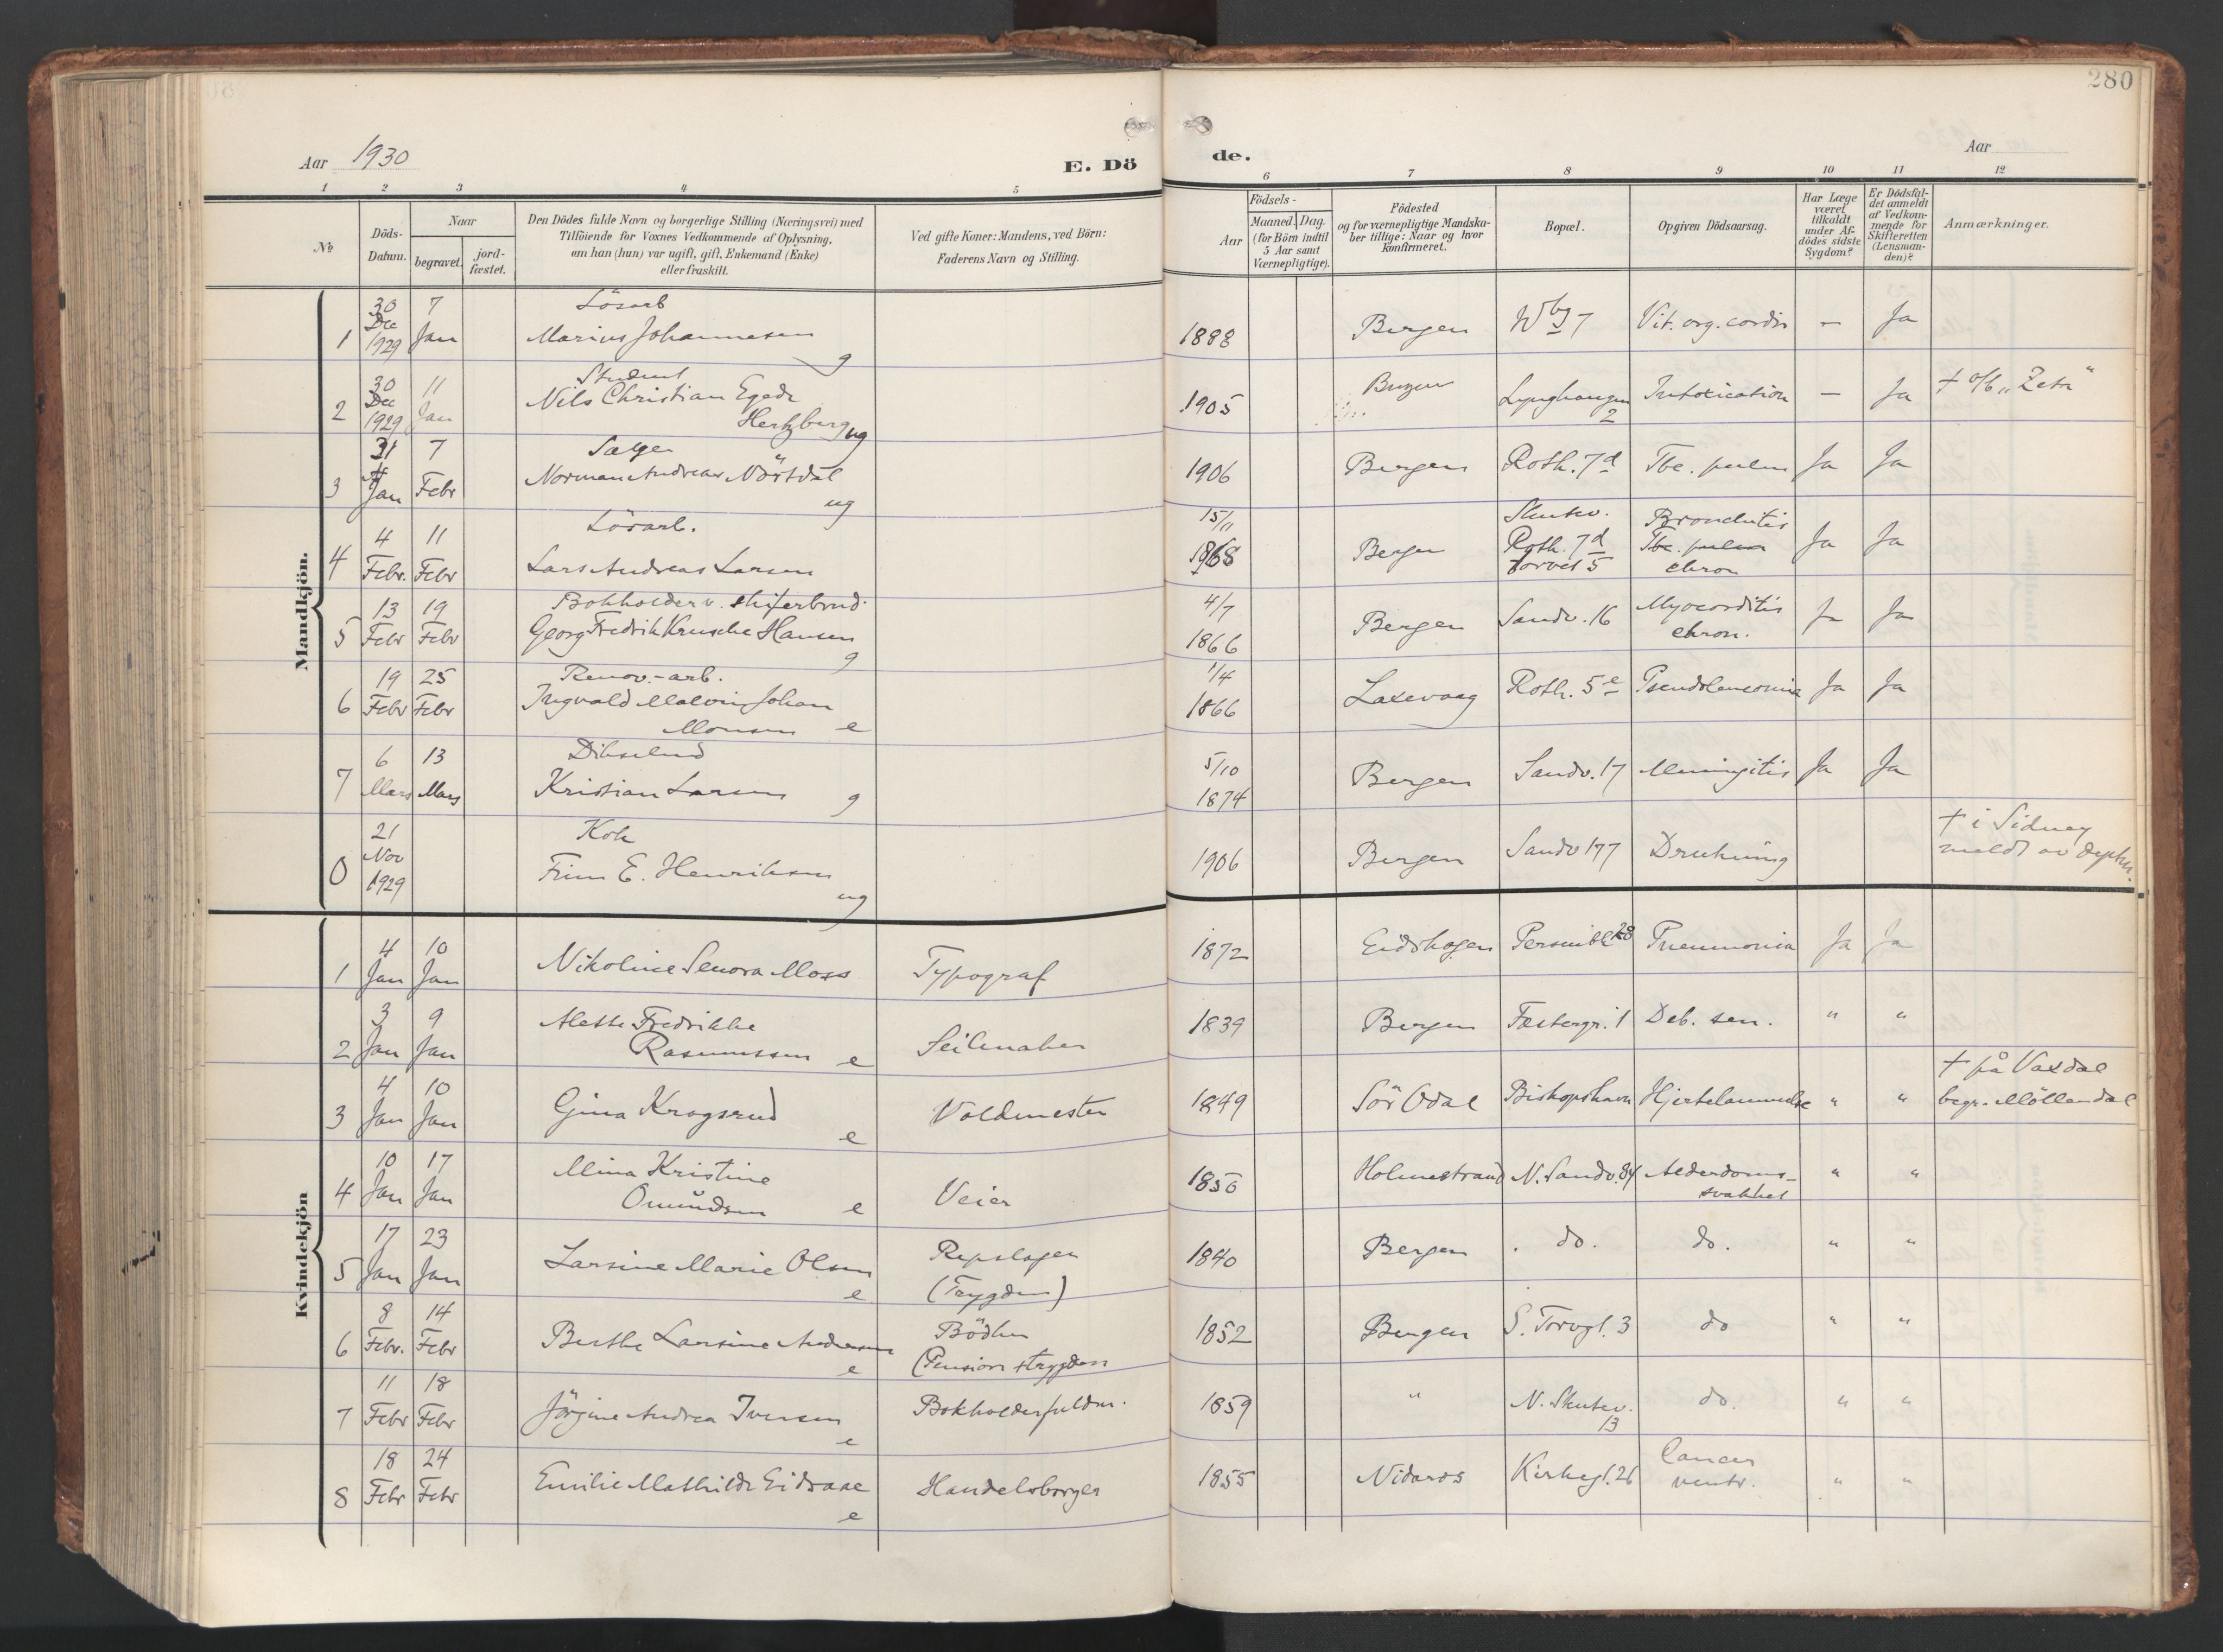 280
Aar 1930
E. Dö
de.
Aar
1 2 3 4 5
6 7 8 9 10 11 12
№
Döds-
Datum.
Naar
begravet.
jord-
fæstet.
Den Dödes fulde Navn og borgerlige Stilling (Næringsvei) med
Tilföiende for Voxnes Vedkommende af Oplysning,
om han (hun) var ugift, gift, Enkemand (Enke)
eller fraskilt.
Ved gifte Koner: Mandens, ved Börn:
Faderens Navn og Stilling.
Födsels-
Aar
Maaned. Dag.
(for Börn indtil
5 Aar samt
Værnepligtige).
Födested
og for værnepligtige Mandska-
ber tillige: Naar og hvor
konfirmeret.
Bopæl.
Opgiven Dödsaarsag.
Har Læge
været
tilkaldt
under Af-
dödes sidste
Sygdom?
Er Dödsfal-
det anmeldt
af Vedkom-
mende for
Skifteretten
(Lensman-
den)?
Anmærkninger.
Mandkjön.
1 30 Dec 1929 7 Jan Lösarb
Marius Johannesen g 1888 Bergen Wbg 7 Vit. org. cordis — Ja
2 30 Dec 1929 11 Jan Student
Nils Christian Egede
Hertzberg ug 1905 Bergen Lynghaugen 2 Intoxication — Ja + o/b „Zeta"
3 31 Jan 7 Febr Sælger
Norman Andreas Nörtdal ug 1906 Bergen Roth. 7d Tbc. pulm Ja Ja
4 4 Febr. 11 Febr Lösarb.
Lars Andreas Larsen 15/11 1868 Bergen Skutev. Roth. 7d torvet 5 Bronchitis Tbc. pulm chron Ja Ja
5 13 Febr 19 Febr Bokholder v. skiferbrud.
Georg Fredrik Krusche Hansen g 4/7 1866 Bergen Sandv. 16 Myocarditis chron. Ja Ja
6 19 Febr 25 Febr Renov.-arb.
Ingvald Malvin Johan
Monsen e 1/4 1866 Laxevaag Roth. 5e Pseudoleucemia Ja Ja
7 6 Mars 13 Mars
Kristian Larsen g 5/10 1874 Bergen Sandv. 17 Meningitis Ja Ja
0 21 Nov 1929 Kok
E. Henriksen ug 1906 Bergen Sandv 177 Drukning + i Sidney
meldt av
Kvindekjön
1 4 Jan 10 Jan Nikoline Senora Moss Typograf 1872 Eidshagen 28 Pneumonia Ja Ja
2 3 Jan 9 Jan Alette Fredrikke
Rasmussen e Seilmaker 1839 Bergen Fæstergr. 1 Deb. sen. " "
3 4 Jan 10 Jan Gina Krogsrud e Voldmester 1849 Sör Odal Biskopshavn Hjertelammelse " " + på Vaxdal
begr. Möllendal
4 10 Jan 17 Jan Mina Kristine
Omundsen e Veier 1850 Holmestrand N. Sandv. 84 Alderdoms-
svakhet " "
5 17 Jan 23 Jan Larsine Marie Olsen e Repslager
(Trygden) 1840 Bergen do. do. " "
6 8 Febr. 14 Febr Berthe Larsine Andersen e Bödker
(Pensionstrygden 1852 Bergen S. Torvgt. 3 do " "
7 11 Febr 18 Febr Jörgine Andrea Iversen e Bokholderfuldm. 1859 " N. Skutev. 13 do. " "
8 18 Febr 24 Febr Emilie Mathilde Eidsaae e Handelsborger 1855 Nidaros Kirkegt. 26 Cancer
ventr. " "